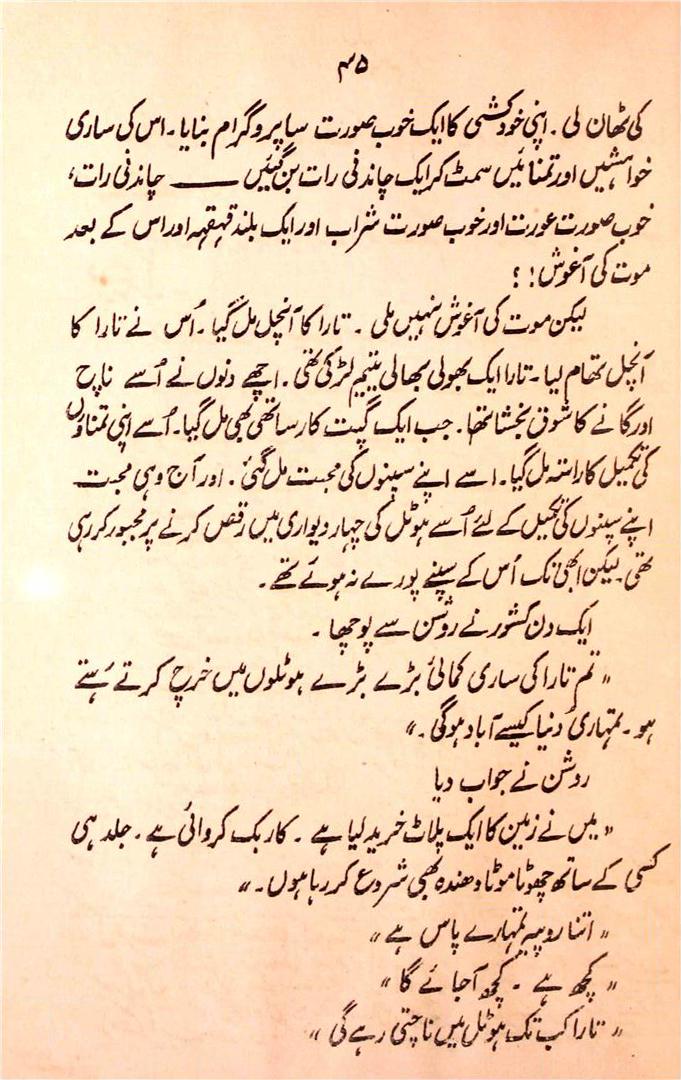 ۴۵
کی ٹھان لی ۔ اپنی خودکشی کا ایک خوب صورت سا پروگرام بنایا ۔ اس کی ساری
خواہشیں اور تمنائیں سمٹ کر ایک چاندنی رات بن گئیں ــــــ چاندنی رات ،
خوب صورت عورت اور خوب صورت شراب اور ایک بلند قہقہہ اور اس کے بعد
موت کی آغوش ! ؟
لیکن موت کی آغوش نہیں ملی ۔ تارا کا آنچل مل گیا ۔ اُس نے تارا کا
آنچل تھام لیا ۔ تارا ایک بھولی بھالی یتیم لڑکی تھی ۔ اچھے دنوں نے اُسے ناچ
اور گانے کا شوق بخشا تھا ۔ جب ایک گیت کار ساتھی بھی مل گیا ۔ اُسے اپنی تمناؤں
کی تکمیل کا راستہ مل گیا ۔ اسے اپنے سپنوں کی محبت مل گئی ۔ اور آج وہی محبت
اپنے سپنوں کی تکمیل کے لئے اُسے ہوٹل کی چہار دیواری میں رقص کرنے پر مجبور کر رہی
تھی ۔ لیکن ابھی تک اُس کے سپنے پورے نہ ہوئے تھے ۔
ایک دن کشور نے روشن سے پوچھا ۔
" تم تارا کی ساری کمائی بڑے بڑے ہوٹلوں میں خرچ کرتے رہتے
ہو ۔ تمہاری دنیا کیسے آباد ہوگی ۔ "
روشن نے جواب دیا
" میں نے زمین کا ایک پلاٹ خرید لیا ہے ۔ کار بک کروائی ہے ۔ جلد ہی
کسی کے ساتھ چھوٹا موٹا دھندہ بھی شروع کر رہا ہوں ۔ "
" اتنا روپیہ تمہارے پاس ہے "
" کچھ ہے ۔ کچھ آجائے گا "
" تارا کب تک ہوٹل میں ناچتی رہے گی "